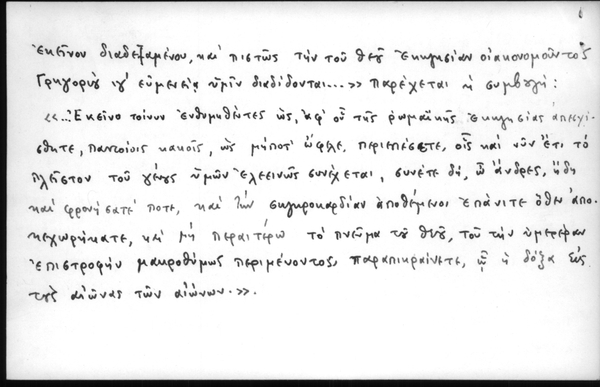 ἐκεῖνον διαδεξαμένου, καὶ πιστῶς τὴν τοῦ θεοῦ ἐκκλησίαν οἰακονομοῦντος
Γρηγορίου ιγ' εὐμενείᾳ ὑμῖν διαδίδονται...>> παρέχεται ἡ συμβουλή:
<<...Ἐκεῖνο τοίνυν ἐνθυμηθέντες ὡς, ἀφ' οὗ τῆς ρωμαϊκῆς ἐκκλησίας ἀπεσχί-
σθητε, παντοίοις κακοῖς, ὡς μήποτ' ὤφελε, περιεπέσατε, οἷς καὶ νῦν ἔτι τὸ
πλεῖστον τοῦ γένους ὑμῶν ἐλεεινῶς συνέχεται, συνέτε δή, ὦ ἄνδρες, ἤδη
καὶ φρονήσατέ ποτε, καὶ τὴν σκληροκαρδίαν ἀποθέμενοι ἐπάνιτε ὅθεν ἀπο-
κεχωρήκατε, καὶ μὴ περαιτέρω τὸ πνεῦμα τοῦ θεοῦ, τοῦ τὴν ὑμετέραν
ἐπιστροφὴν μακροθύμως περιμένοντος, παραπικραίνετε, ᾧ ἡ δόξα εἰς
τοὺς αἰῶνας τῶν αἰώνων.>>.